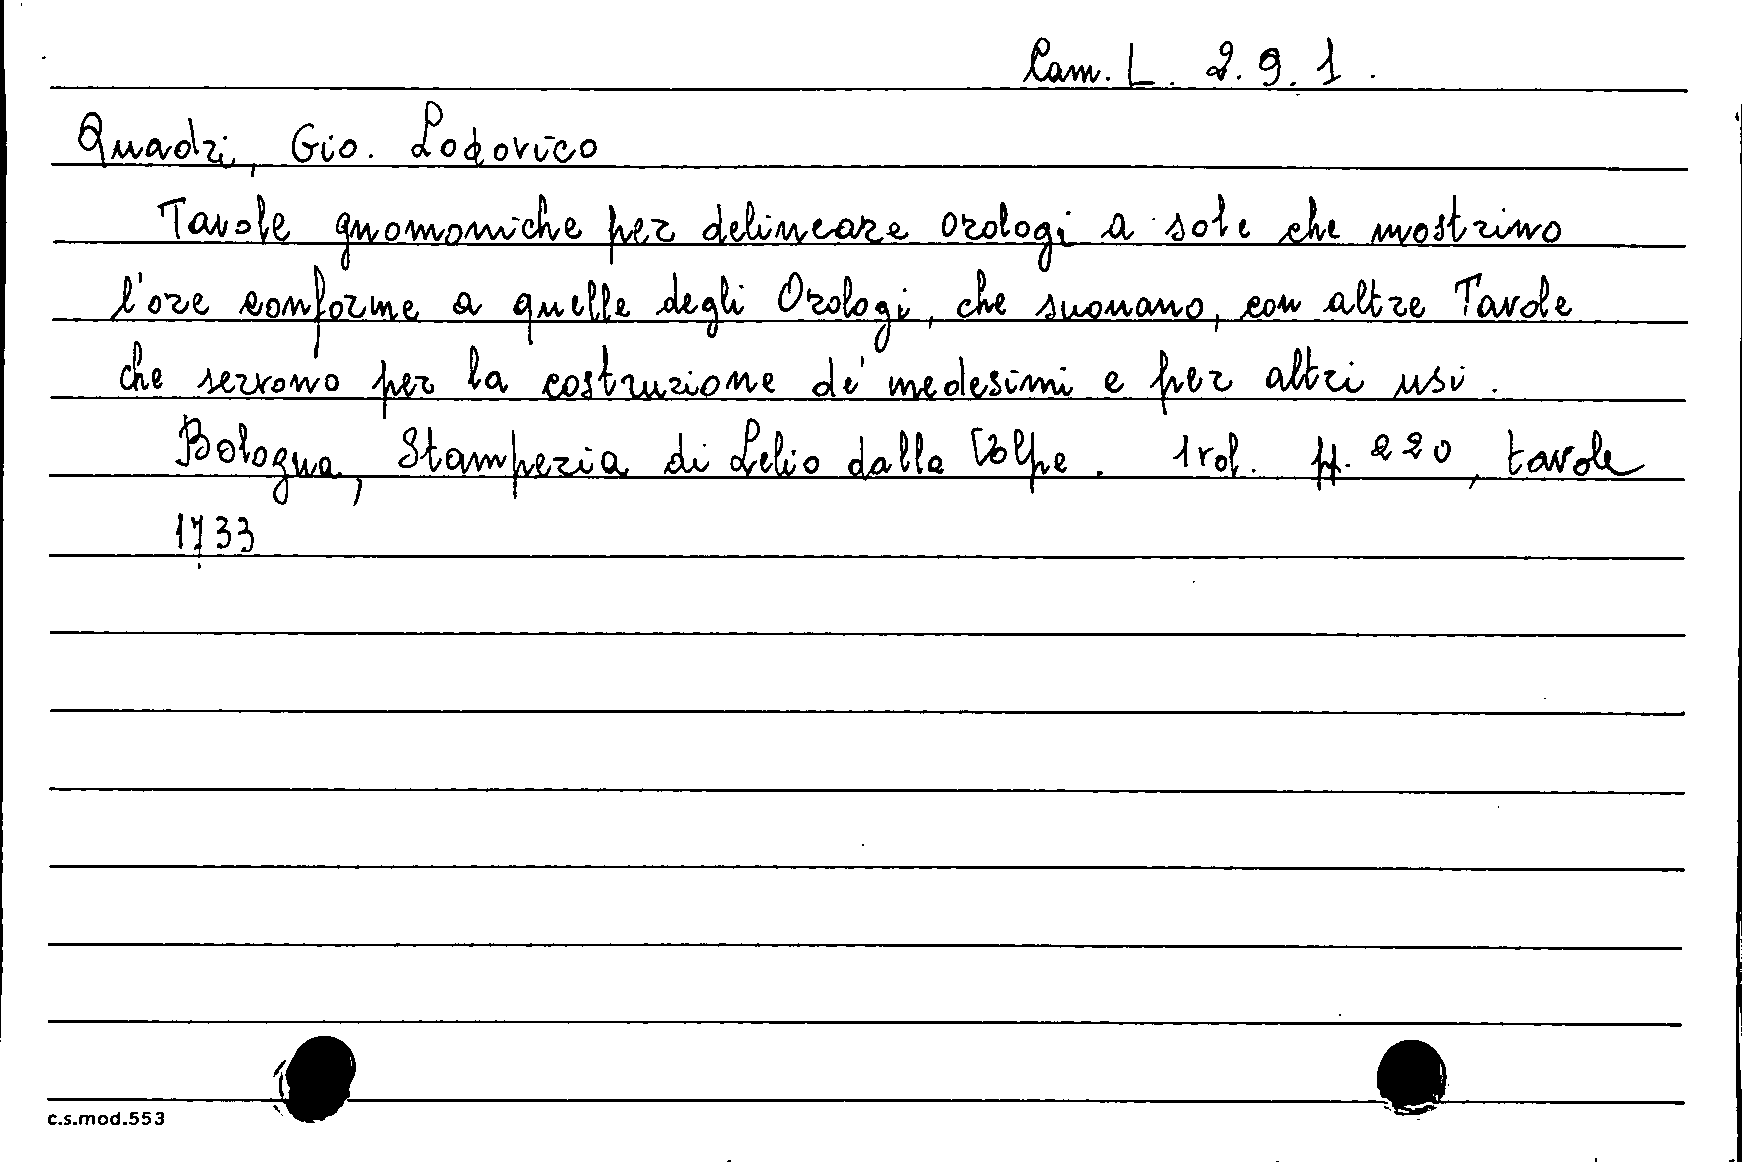 Cam. L. 2.9.1.
Quadri, Gio. Lodovico
Tavole gnomoniche per delineare orologi a sole che mostrino
l'ore conforme a quelle degli Orologi, che suonano, con altre Tavole
che servono per la costruzione de' medesimi e per altri usi.
Bologna, Stamperia di Lelio dalla Volpe. 1 vol. pp. 220, tavole
1733
c.s.mod.553